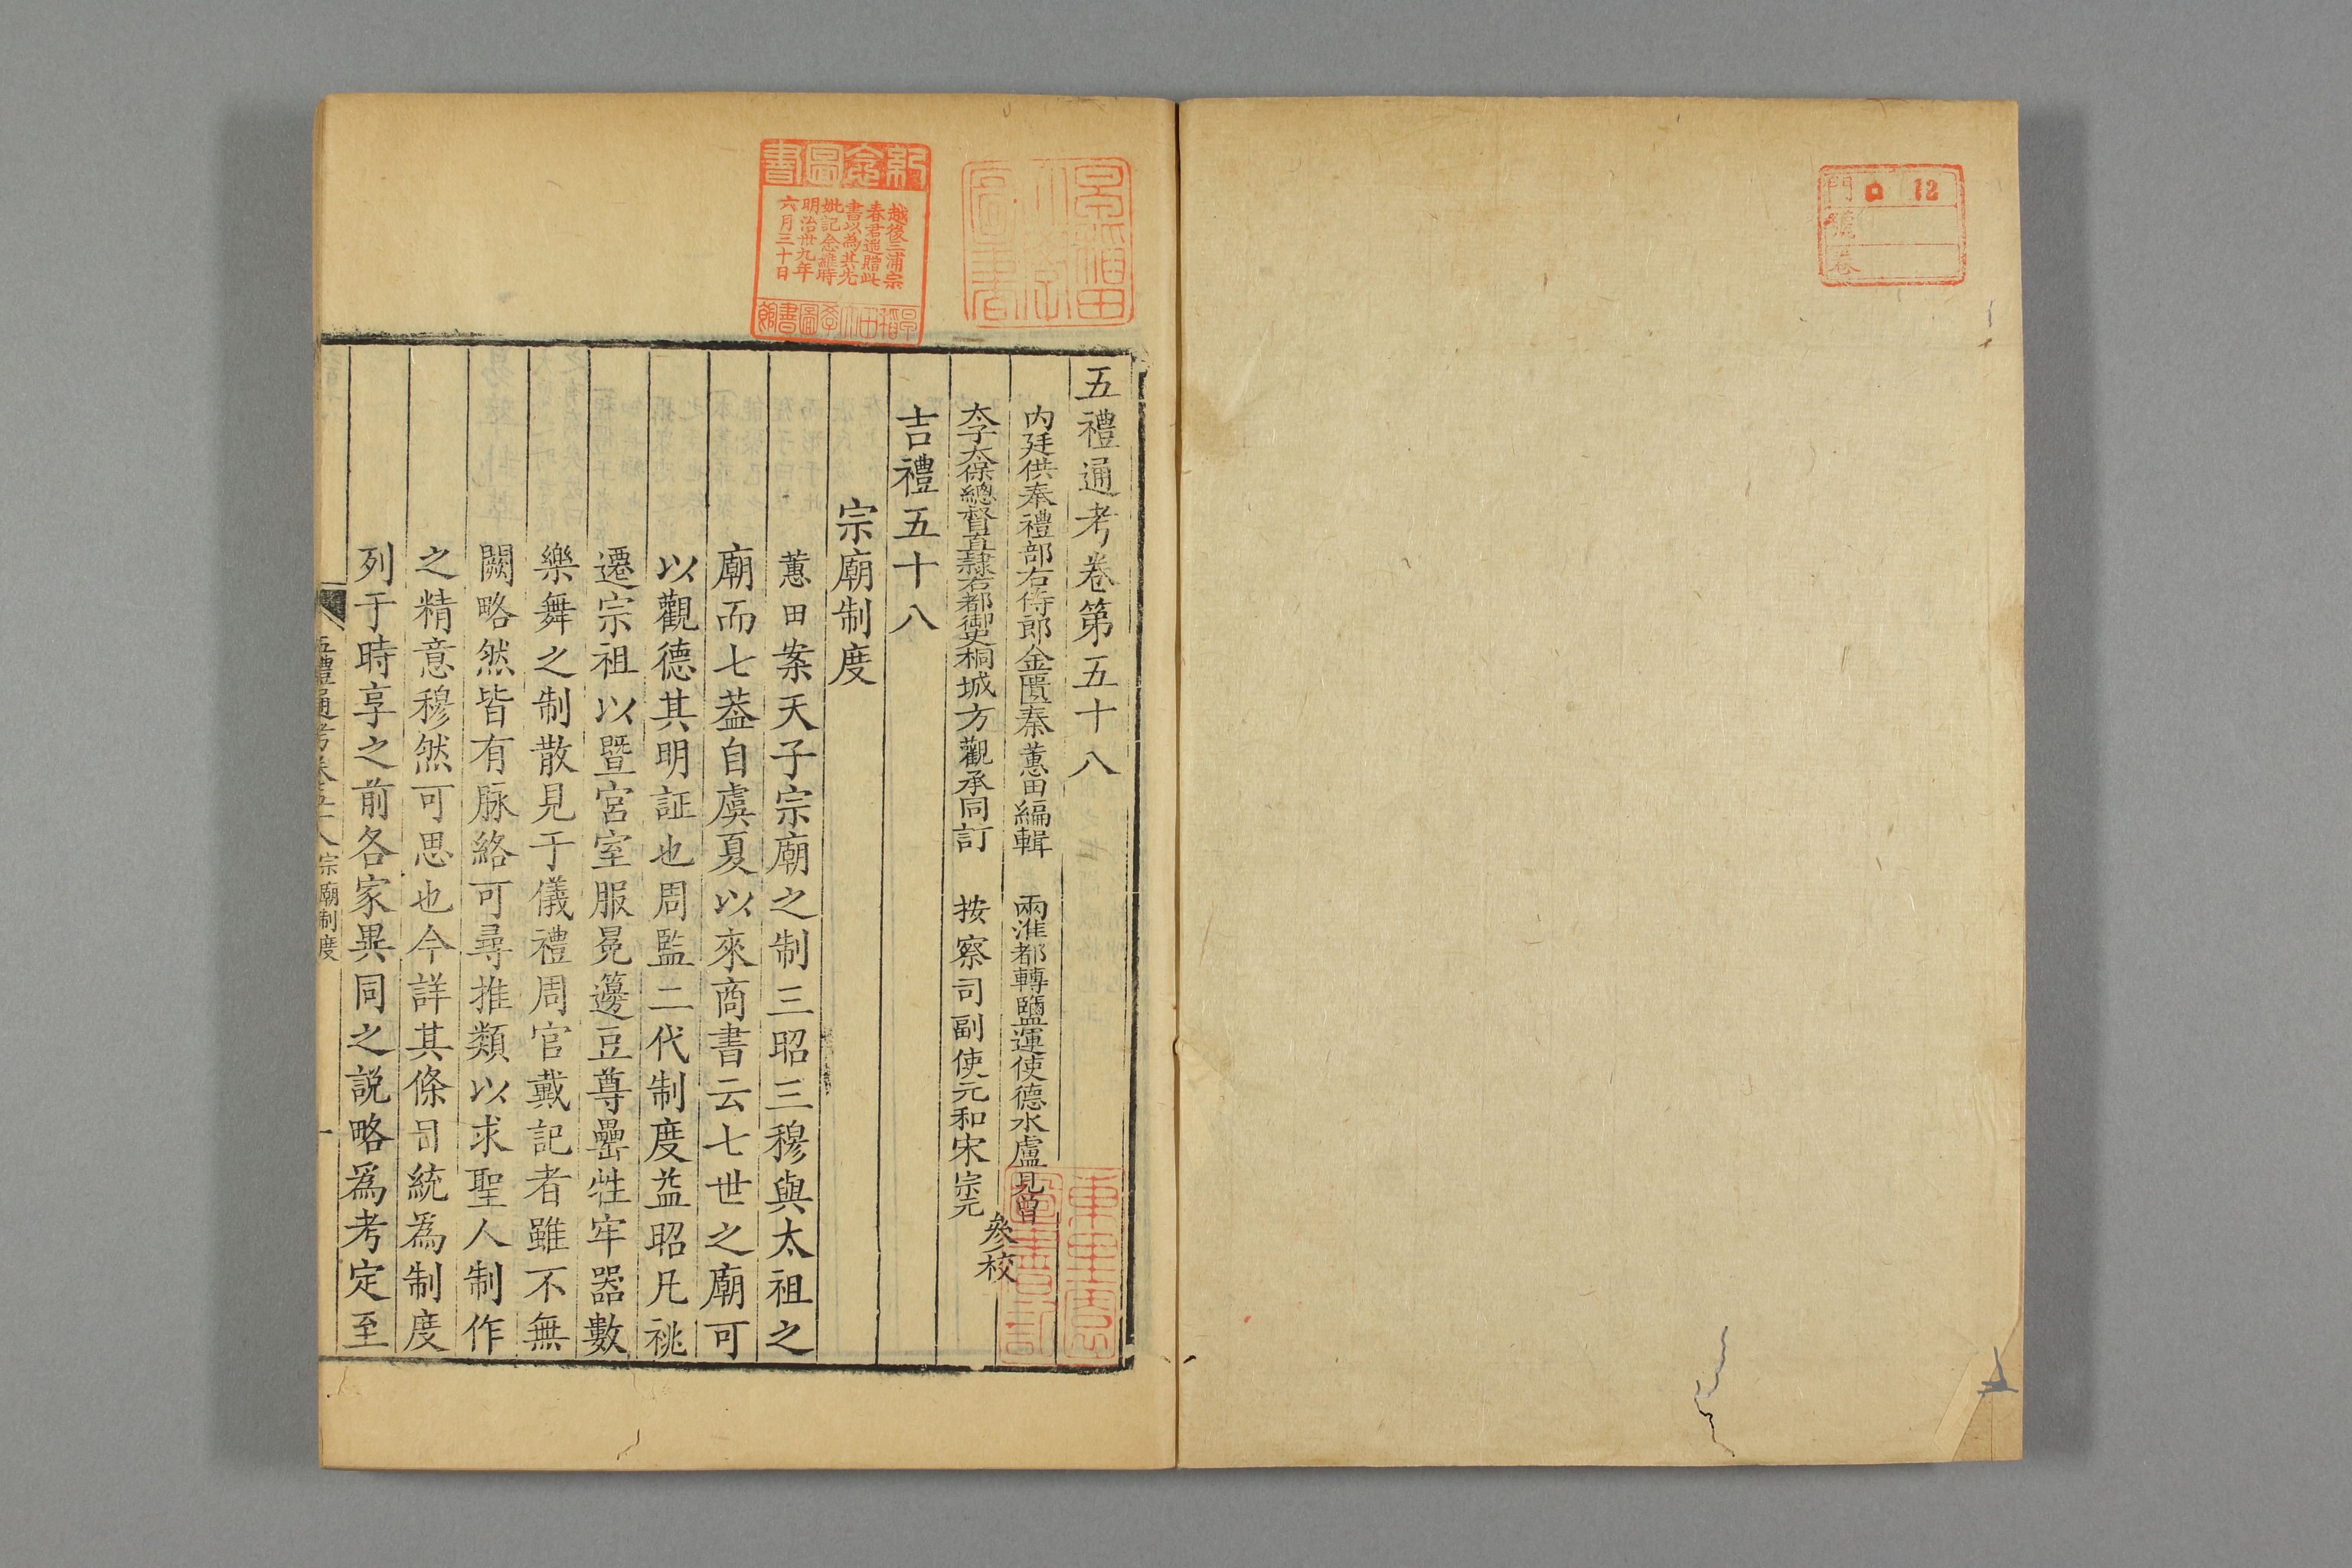 門 口 12
號
卷
五禮通考卷第五十八
內廷供奉禮部右侍郎金匱秦蕙田編輯 兩淮都轉鹽運使德水盧見曾
太子太保總督直隸右都御史桐城方觀承同訂 按察司副使元和宋宗元
參校
吉禮五十八
宗廟制度
蕙田案天子宗廟之制三昭三穆與太祖之
廟而七葢自虞夏以來商書云七世之廟可
以觀德其明証也周監二代制度益昭凡祧
遷宗祖以暨宮室服冕籩豆尊罍牲牢器數
樂舞之制散見于儀禮周官戴記者雖不無
闕略然皆有脉絡可尋推類以求聖人制作
之精意穆然可思也今詳其條目統爲制度
列于時享之前各家異同之説略爲考定至
五禮通考卷五十八 宗廟制度 一
早稻田大學圖書
紀念圖書
越後三浦宗
春君遥贈此
書以為其先
妣記念維時
明治卅九年
六月三十日
早稻田大學圖書館